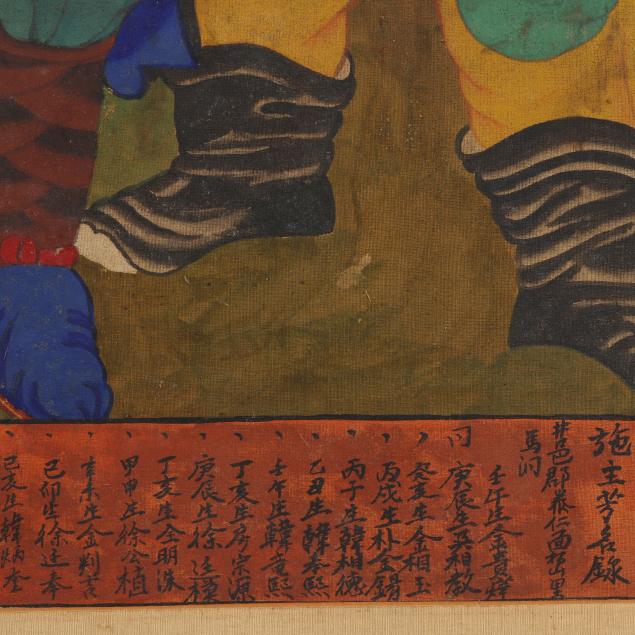 施主芳名錄
井邑郡
馬洞
壬午生金
同 庚辰生吳相敎
〃 癸亥生金相玉
〃 丙戌生朴金錫
〃 丙子生韓相德
〃 乙丑生韓泰熙
〃 壬午生韓重熙
〃 丁亥生房宗源
〃 庚辰生徐廷
〃 丁亥生全明洙
〃 甲申生徐公植
〃 辛未生金判吉
〃 己卯生徐廷奉
〃 己亥生韓炳奎